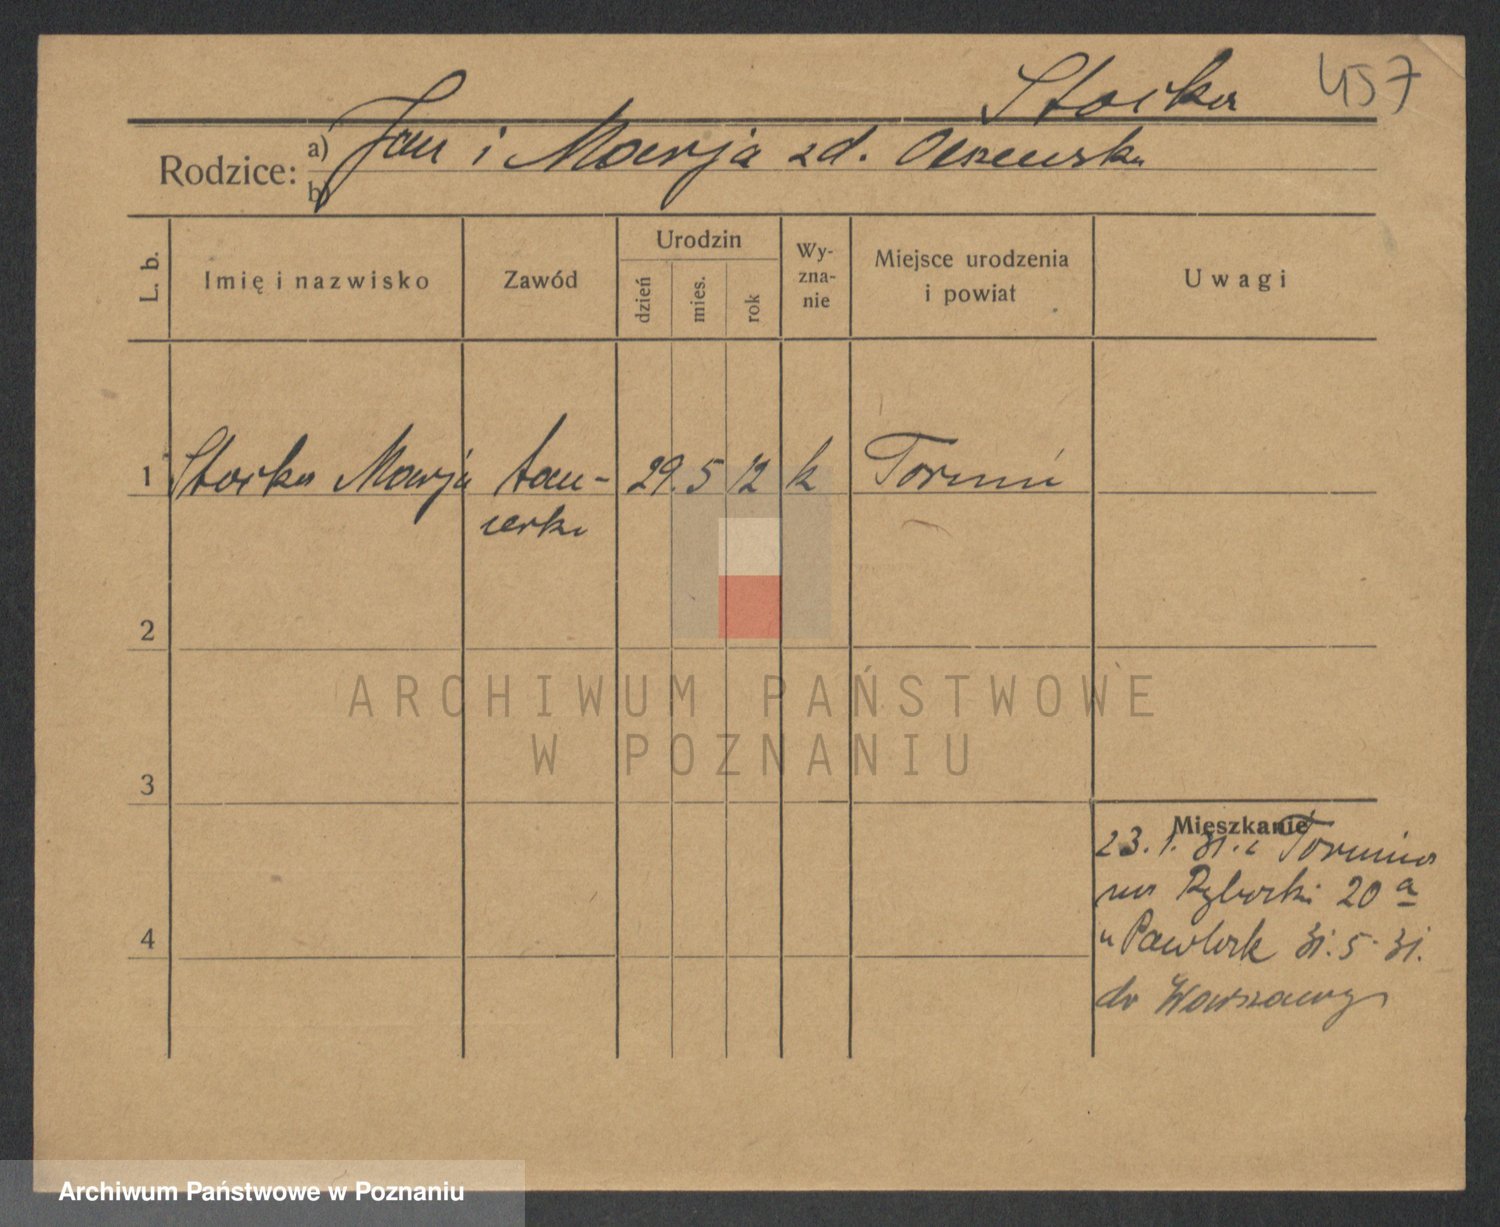 Stoika 457
Rodzice: a) Jan i Marja zd. Olszewska
b)
L. b. Imię i nazwisko Zawód Urodzin dzień mies. rok Wy-zna-nie Miejsce urodzenia i powiat Uwagi
1 Stoika Marja tan- 29. 5 12 k Toruń
cerka
2
3
4
Mieszkanie
23. 1. 31. z Torunia
na Rybaki 20 a
u Pawlak 31. 5. 31.
do Warszawy
ARCHIWUM PAŃSTWOWE
W POZNANIU
Archiwum Państwowe w Poznaniu